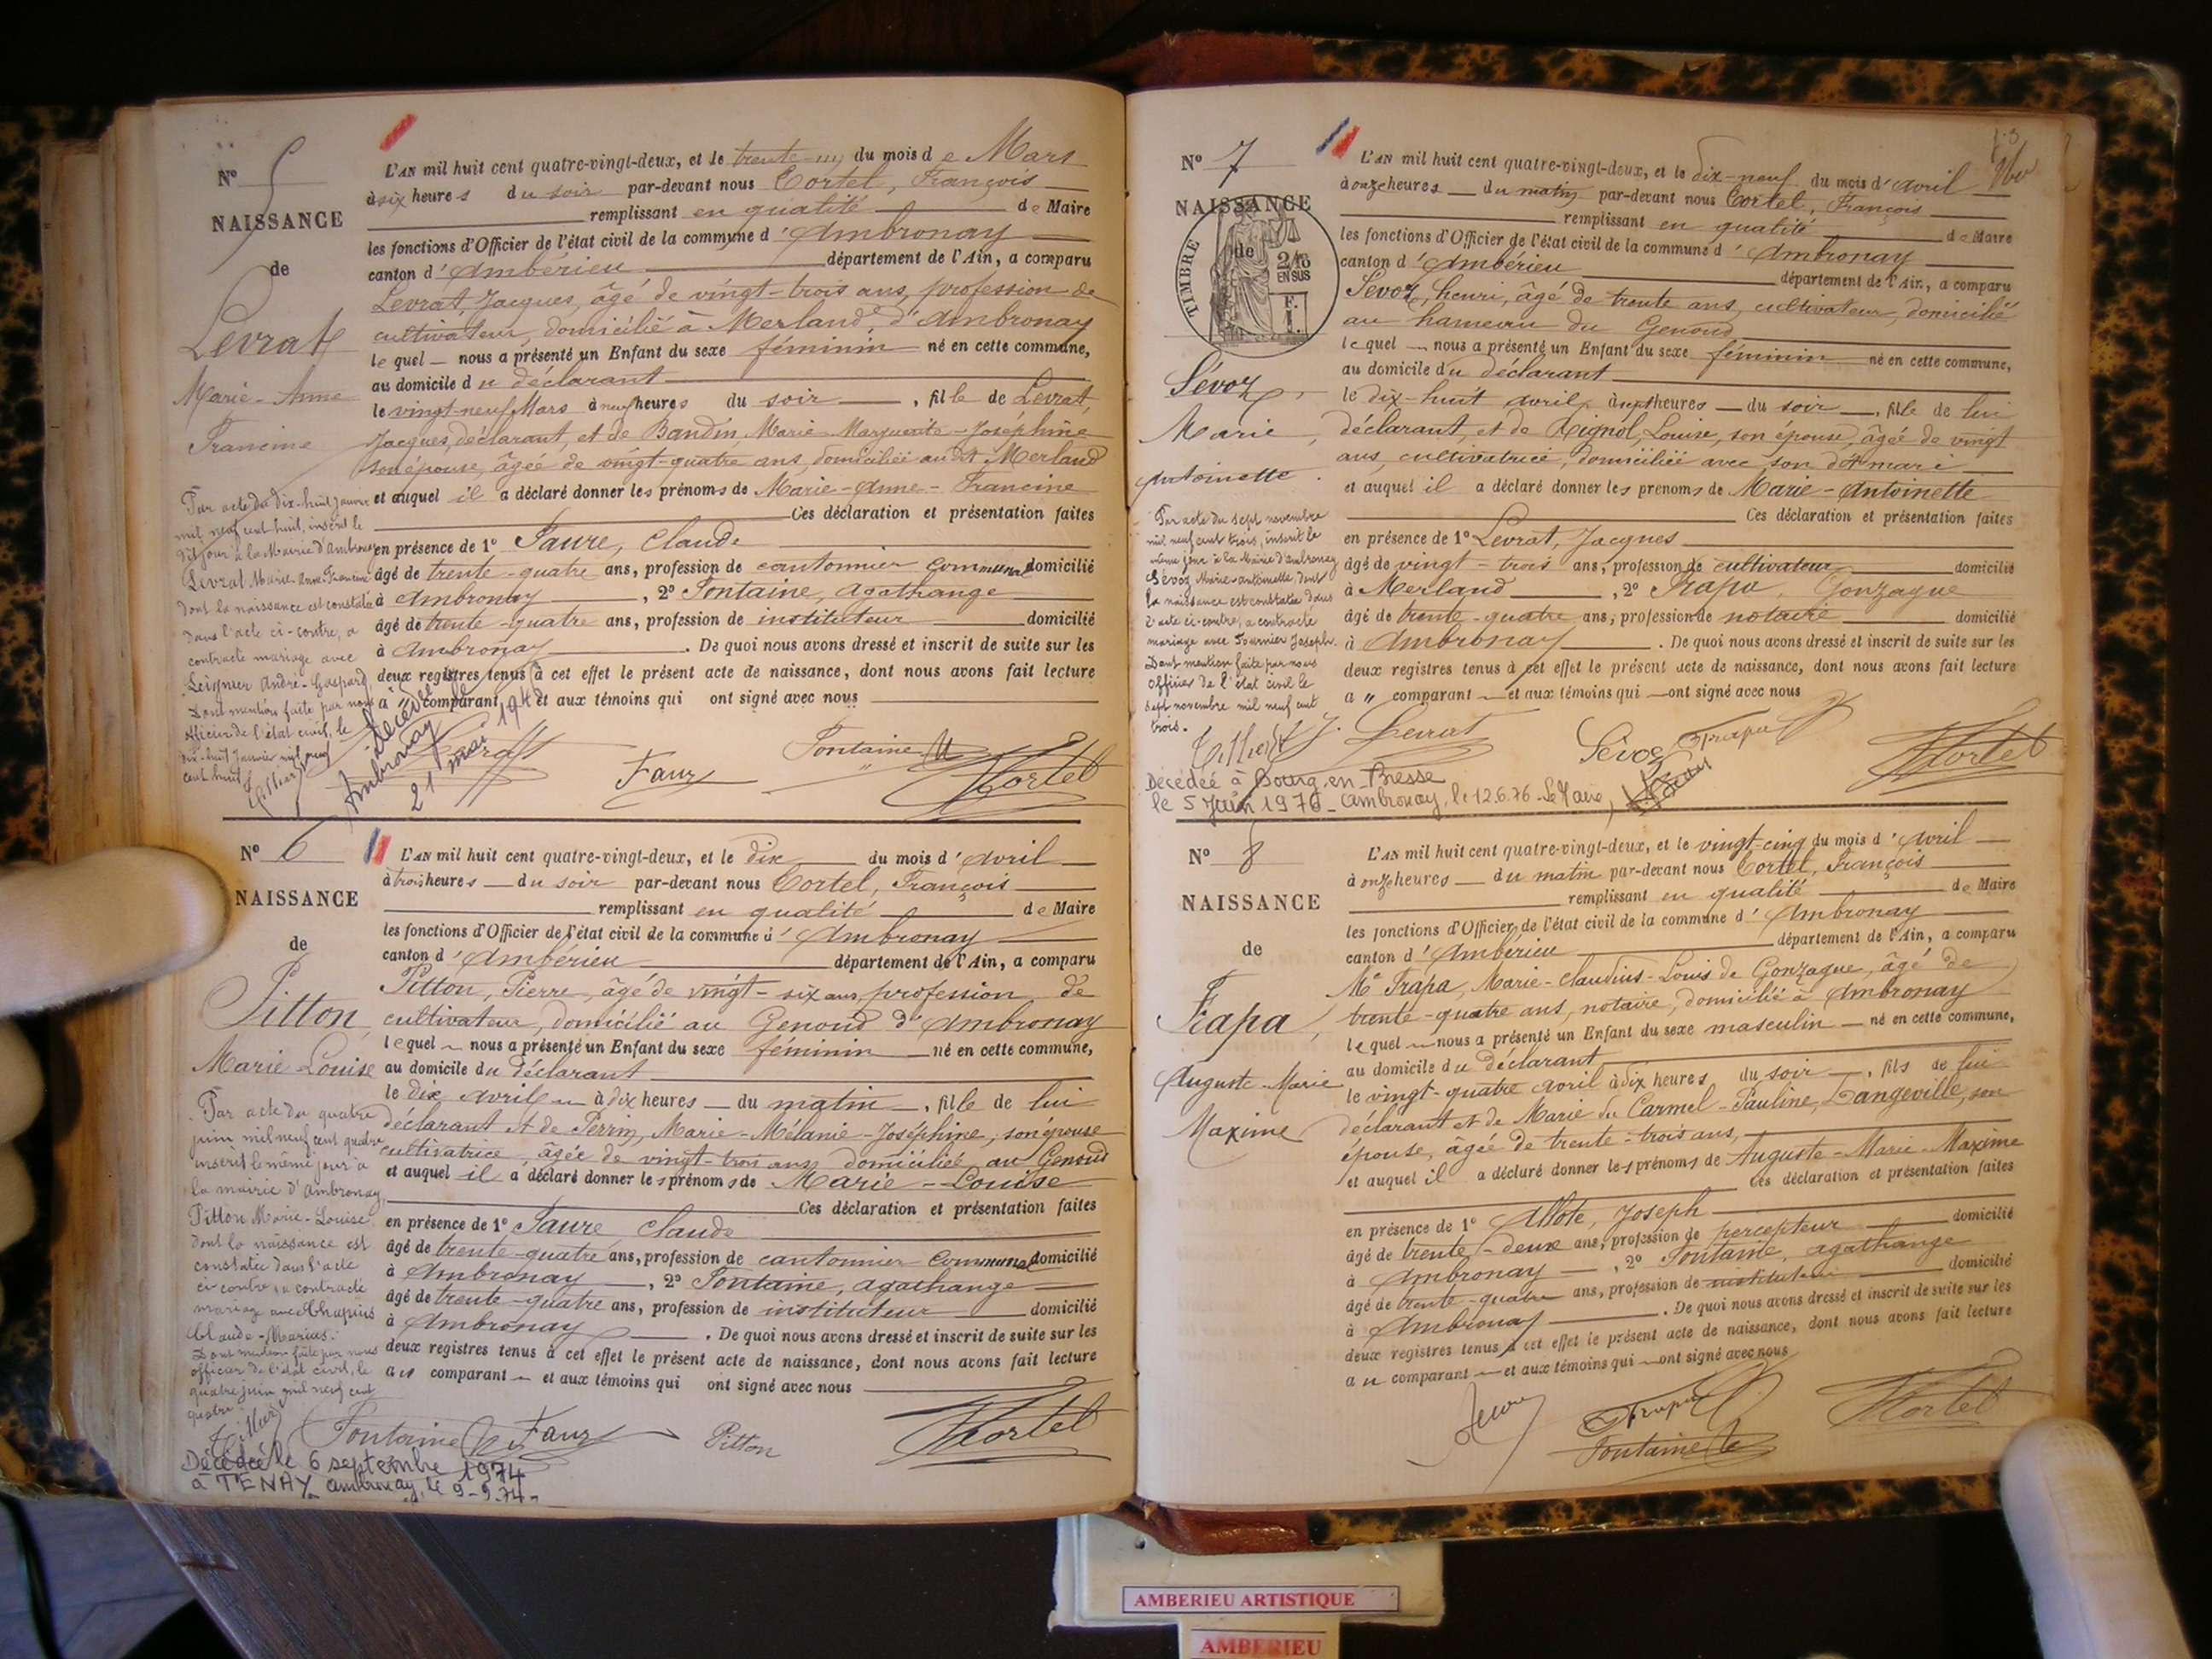 Nº 5
NAISSANCE
de
Levrat
Marie-Anne
Francine
L'AN mil huit cent quatre-vingt-deux, et le trente-un du mois de Mars
à six heures du soir par-devant nous Cortel, François
remplissant en qualité de Maire
les fonctions d'Officier de l'état civil de la commune d'Ambronay
canton d'Ambérieu département de l'Ain, a comparu
Levrat, Jacques, âgé de vingt-trois ans, profession de
cultivateur, domicilié à Merland, d'Ambronay
lequel nous a présenté un Enfant du sexe féminin né en cette commune,
au domicile du déclarant
le vingt-neuf Mars à neuf heures du soir, fille de Levrat,
Jacques, déclarant, et de Bandin, Marie-Marguerite-Joséphine
son épouse, âgée de vingt-quatre ans, domiciliée audit Merland
et auquel il a déclaré donner les prénoms de Marie-Anne-Francine
Ces déclaration et présentation faites
en présence de 1º Faure, Claude
âgé de trente-quatre ans, profession de cantonnier communal domicilié
à Ambronay, 2º Fontaine, Agathange
âgé de trente-quatre ans, profession de instituteur domicilié
à Ambronay. De quoi nous avons dressé et inscrit de suite sur les
deux registres tenus à cet effet le présent acte de naissance, dont nous avons fait lecture
à comparant et aux témoins qui ont signé avec nous
Par acte du dix-huit janvier
mil neuf cent huit, inscrit le
dit jour à la Mairie d'Ambronay
Levrat Marie-Anne-Francine
dont la naissance est constatée
dans l'acte ci-contre, a
contracté mariage avec
Leignier André-Gaspard,
Dont mention faite par nous
officier de l'état civil, le
dix-huit Janvier mil neuf
cent huit
décédée
Ambronay le
21 mai 194
Levrat Faure Fontaine Cortel
Nº 6
NAISSANCE
de
Pitton
Marie-Louise
L'AN mil huit cent quatre-vingt-deux, et le dix du mois d'avril
à trois heures du soir par-devant nous Cortel, François
remplissant en qualité de Maire
les fonctions d'Officier de l'état civil de la commune d'Ambronay
canton d'Ambérieu département de l'Ain, a comparu
Pitton, Pierre, âgé de vingt-six ans, profession de
cultivateur, domicilié au Genoud d'Ambronay
lequel nous a présenté un Enfant du sexe féminin né en cette commune,
au domicile du déclarant
le dix avril à dix heures du matin, fille de lui
déclarant et de Perrin, Marie-Mélanie-Joséphine, son épouse
cultivatrice, âgée de vingt-trois ans domiciliée au Genoud
et auquel il a déclaré donner les prénoms de Marie-Louise
Ces déclaration et présentation faites
en présence de 1º Faure, Claude
âgé de trente-quatre ans, profession de cantonnier communal domicilié
à Ambronay, 2º Fontaine, Agathange
âgé de trente-quatre ans, profession de instituteur domicilié
à Ambronay. De quoi nous avons dressé et inscrit de suite sur les
deux registres tenus à cet effet le présent acte de naissance, dont nous avons fait lecture
au comparant et aux témoins qui ont signé avec nous
Par acte du quatre
juin mil neuf cent quatre
inscrit le même jour à
la mairie d'Ambronay,
Pitton Marie-Louise
dont la naissance est
constatée dans l'acte
ci-contre, a contracté
mariage avec Chapuis
Claude-Marius.
Dont mention faite par nous
officier de l'état civil, le
quatre juin mil neuf cent
quatre.
Fontaine Faure Pitton Cortel
Décédée le 6 septembre 1974
à TENAY Ambronay, le 9-9-74
Nº 7
NAISSANCE
de
TIMBRE
2/10
EN SUS
F.
I.
Sévoz,
Marie,
Antoinette.
L'AN mil huit cent quatre-vingt-deux, et le dix-neuf du mois d'avril
à onze heures du matin par-devant nous Cortel, François
remplissant en qualité de Maire
les fonctions d'Officier de l'état civil de la commune d'Ambronay
canton d'Ambérieu département de l'Ain, a comparu
Sévoz, henri, âgé de trente ans, cultivateur, domicilié
au hameau du Genoud
lequel nous a présenté un Enfant du sexe féminin né en cette commune,
au domicile du déclarant
le dix-huit avril, à sept heures du soir, fille de lui
déclarant, et de Rignol, Louise, son épouse, âgée de vingt
ans, cultivatrice, domiciliée avec son dit mari
et auquel il a déclaré donner les prénoms de Marie-Antoinette
Ces déclaration et présentation faites
en présence de 1º Levrat, Jacques
âgé de vingt-trois ans, profession de cultivateur domicilié
à Merland, 2º Frapa, Gonzague
âgé de trente-quatre ans, profession de notaire domicilié
à Ambronay. De quoi nous avons dressé et inscrit de suite sur les
deux registres tenus à cet effet le présent acte de naissance, dont nous avons fait lecture
a " comparant et aux témoins qui ont signé avec nous
Par acte du sept novembre
mil neuf cent trois, inscrit le
même jour à la Mairie d'Ambronay
Sévoz Marie-Antoinette, dont
la naissance est constatée dans
l'acte ci-contre, a contracté
mariage avec Fournier Joseph.
Dont mention faite par nous
officier de l'état civil le
sept novembre mil neuf cent
trois.
J. Levrat Sévoz Frapa Cortel
Décédée à Bourg en Bresse
le 5 Juin 1976 - Ambronay, le 12.6.76 - Le Maire,
Nº 8
NAISSANCE
de
Frapa,
Auguste-Marie
Maxime
L'AN mil huit cent quatre-vingt-deux, et le vingt-cinq du mois d'avril
à onze heures du matin par-devant nous Cortel, François
remplissant en qualité de Maire
les fonctions d'Officier de l'état civil de la commune d'Ambronay
canton d'Ambérieu département de l'Ain, a comparu
Me Frapa, Marie-Claudius-Louis de Gonzague, âgé de
trente-quatre ans, notaire, domicilié à Ambronay
lequel nous a présenté un Enfant du sexe masculin né en cette commune,
au domicile du déclarant
le vingt-quatre avril à dix heures du soir, fils de lui
déclarant et de Marie du Carmel-Pauline, Dangeville, son
épouse, âgée de trente-trois ans,
et auquel il a déclaré donner les prénoms de Auguste-Marie-Maxime
Ces déclaration et présentation faites
en présence de 1º Joseph
âgé de trente-deux ans, profession de percepteur domicilié
à Ambronay, 2º Fontaine, agathange
âgé de trente-quatre ans, profession de instituteur domicilié
à Ambronay. De quoi nous avons dressé et inscrit de suite sur les
deux registres tenus à cet effet le présent acte de naissance, dont nous avons fait lecture
au comparant et aux témoins qui ont signé avec nous
Frapa Cortel
Fontaine
AMBERIEU ARTISTIQUE
AMBERIEU